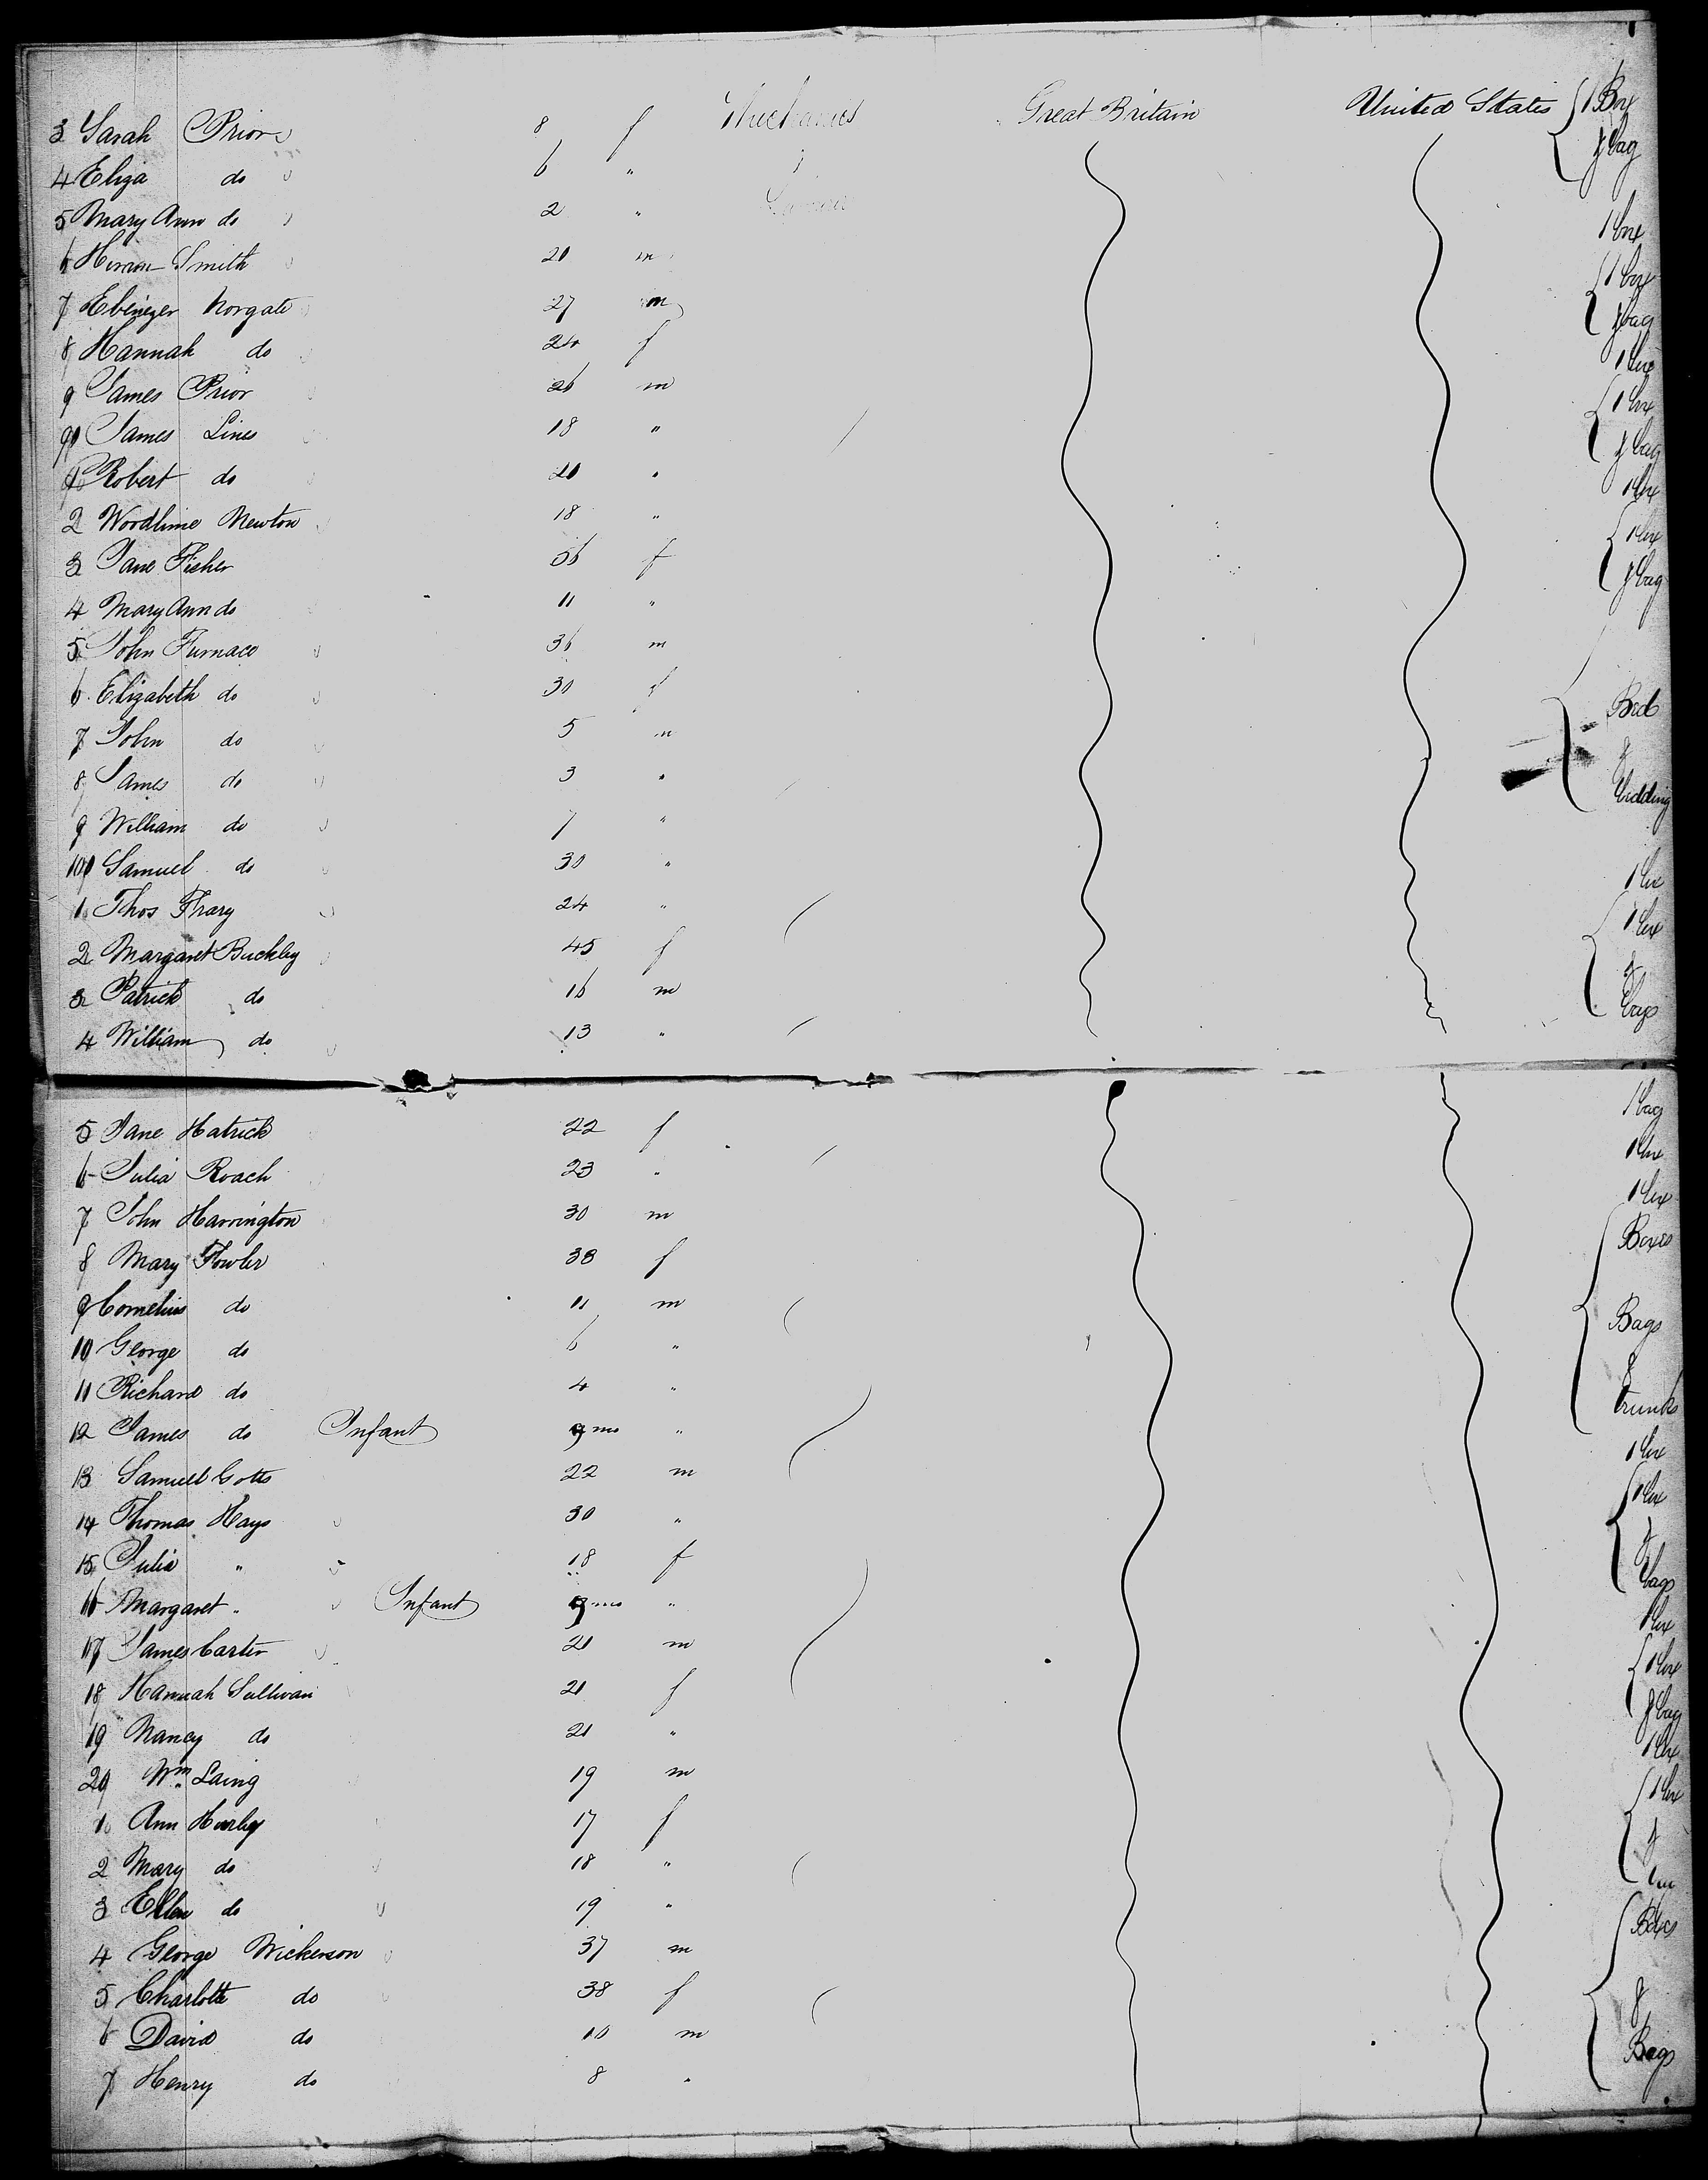 3 Sarah Prior 8 f Mechanics Great Britain United States 1 Box
4 Eliza do 6 " & bag
5 Mary Ann do 2 "
6 Hiram Smith 20 m 1 box
7 Ebenezer Norgate 27 m 1 box
8 Hannah do 24 f & bag
9 James Prior 26 m 1 box
90 James Lines 18 " 1 box
1 Robert do 20 " & bag
2 Woodhime Newton 18 " 1 box
3 Jane Fisher 36 f 1 box
4 Mary Ann do 11 " & bag
5 John Furnace 36 m
6 Elizabeth do 30 f Bed
7 John do 5 m &
8 James do 3 " bedding
9 William do 1 "
100 Samuel do 30 " 1 box
1 Thos Frary 24 " 1 box
2 Margaret Buckley 45 f &
3 Patrick do 16 m bags
4 William do 13 "
5 Jane Hatrick 22 f 1 bag
6 Julia Roach 23 " 1 box
7 John Harrington 30 m 1 box
8 Mary Fowler 38 f Boxes
9 Cornelius do 11 m
10 George do 6 " Bags
11 Richard do 4 " &
12 James do Infant 9 mo " trunks
13 Samuel Gotts 22 m 1 box
14 Thomas Hays 30 " 1 box
15 Julia " 18 f &
16 Margaret " Infant 9 mo " bags
17 James Carter 20 m 1 box
18 Hannah Sullivan 21 f 1 box
19 Nancy do 20 " & bag
20 Wm Laing 19 m 1 box
1 Ann Hurley 17 f 1 box
2 Mary do 18 " &
3 Ellen do 19 "
4 George Wickerson 37 m Boxes
5 Charlotte do 38 f &
6 David do 10 m Bags
7 Henry do 8 "